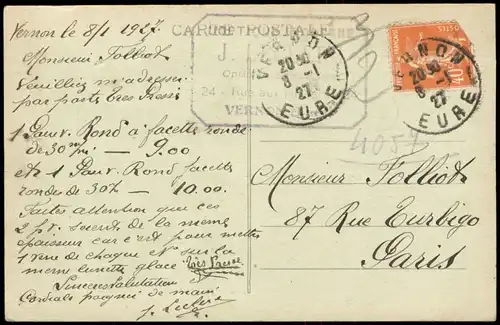 Vernon le 8/1 1927
Monsieur Folliot
Veuillez m'adresser
par poste Très Pressé
1 Pauv. Rond à facettes ronde
de 30 — 9.00
et 1 Pauv. Rond facette
rondes de 30 — 10.00
Faites attention que ces
2 soient de la meme
epaisseur car c'est pour mettre
1 verre de chaque sur la
meme lunette glace Très Pressé
Sinceres salutation
Cordiale poignée de main
J. Leclerc
CARTE POSTALE
J.
24 - Rue
VERNON
VERNON
20 30
8 -1
27
EURE
VERNON
20 30
8 -1
27
EURE
POSTES
10
4057
Monsieur Folliot
87 Rue Turbigo
Paris